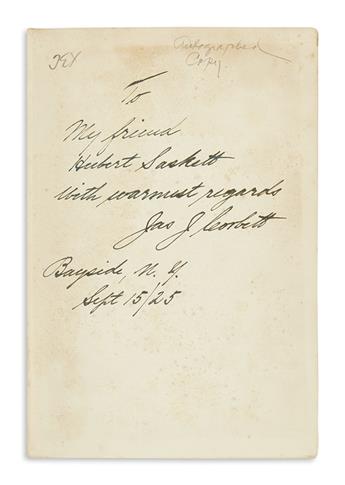 Autographed
Copy.
To
My friend
Hubert Saskett
With warmest regards
Jas J Corbett
Bayside, N. Y.
Sept 15/25